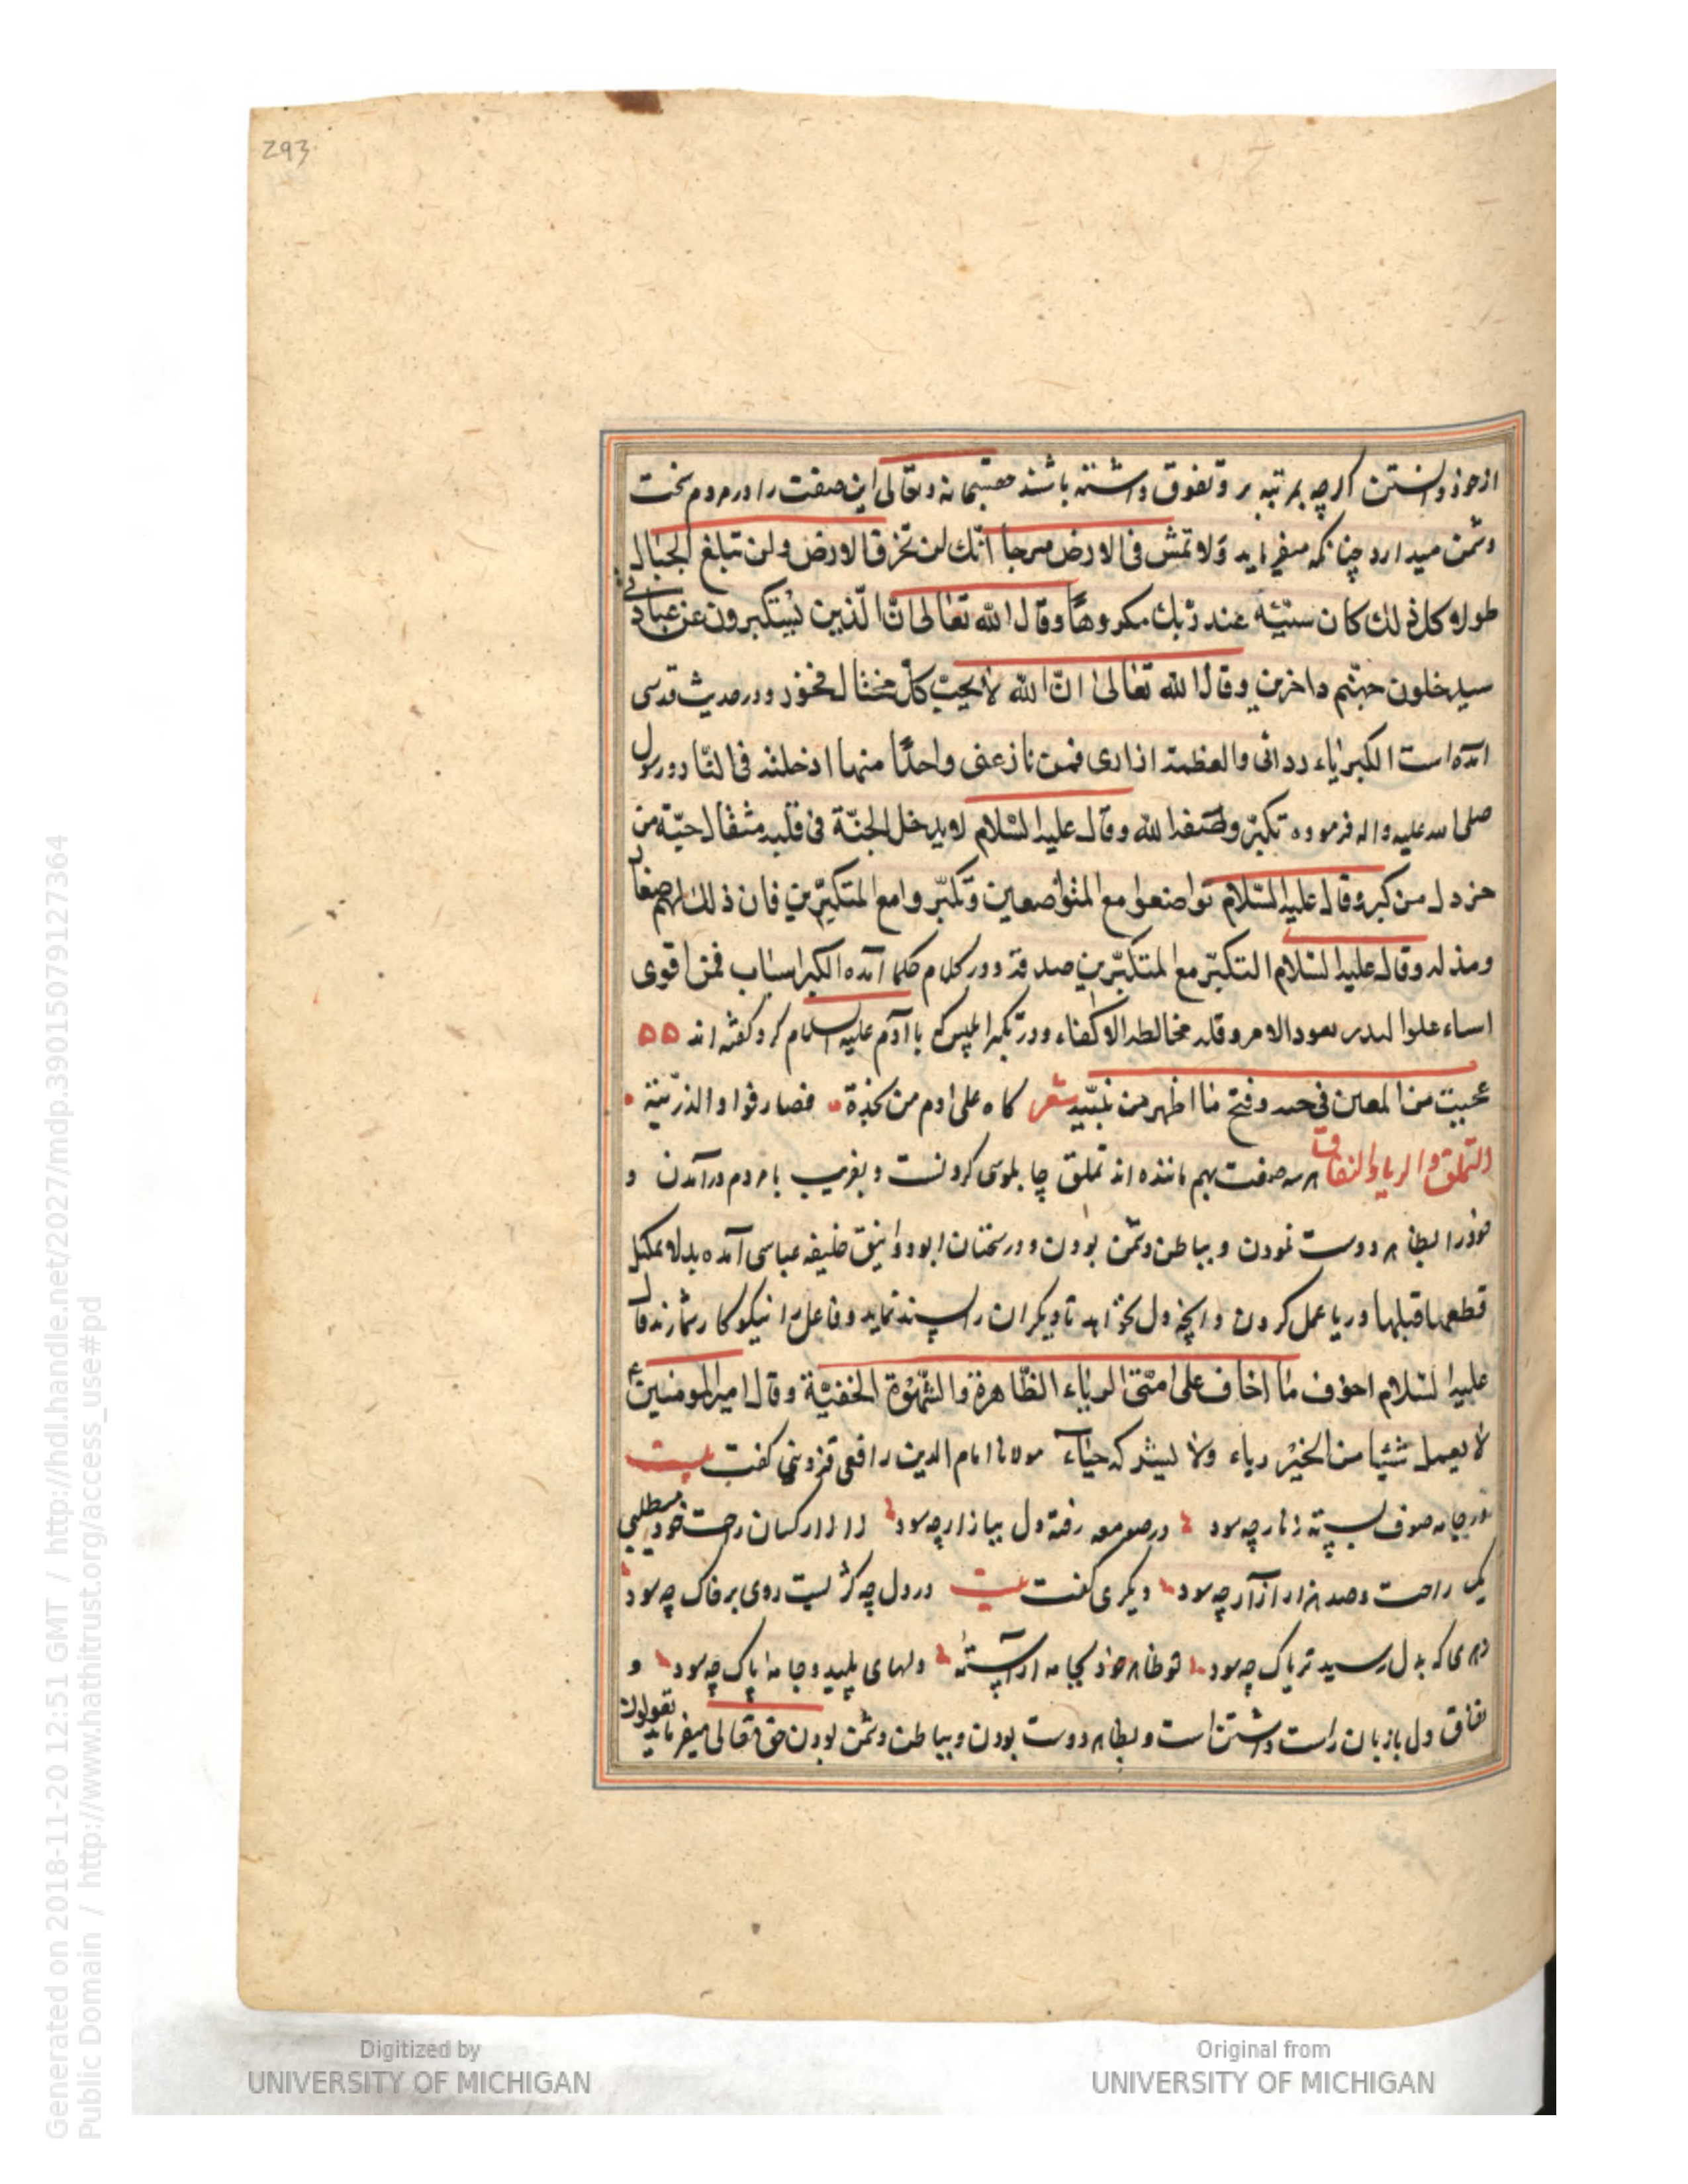 293
از خود دانستن اگرچه بمرتبه برو تفوق داشته باشند حق سبحانه و تعالی این صفت را در مردم سخت
دشمن میدارد چنانکه میفرماید ولا تمش فی الارض مرحا انک لن تخرق الارض ولن تبلغ الجبال
طولا و کل ذلك کان سیئه عند ربك مکروها وقال الله تعالی ان الذین یستکبرون عن عبادتی
سیدخلون جهنم داخرین وقال الله تعالی ان الله لا یحب کل مختال فخور و در حدیث قدسی
آمده است الکبریاء ردائی والعظمة ازاری فمن نازعنی واحدا منها ادخلته فی النار و رسول
صلی الله علیه واله فرموده تکبر وضعفه الله وقال علیه السلام لا یدخل الجنة فی قلبه مثقال حبة من
خردل من کبر وقال علیه السلام تواضعوا مع المتواضعین وتکبروا مع المتکبرین فان ذلك لهم صغار
ومذله وقال علیه السلام التکبر مع المتکبرین صدقة و در کلام حکما آمده الکبر اسباب فمن اقوی
اسباء علوا لیدیر بعود الامر وقلة مخالطة الاکفاء و در تکبر ابلیس که با آدم علیه السلام کرد گفته اند
عجبت من اللعین فی وقبح ما اظهر من شعر تاه علی ادم من فصار قوادا لذریته
التملق والریا والنفاق هر سه صفت بهم ماننده اند تملق چاپلوسی کردنست و بفریب با مردم درآمدن و
خود را بظاهر دوست نمودن و بباطن دشمن بودن و در سخنان ابو دوانیق خلیفه عباسی آمده
و ریا عمل کردن و آنچه دل نخواهد تا دیگران را پسند نماید و فاعل را نیکوکار شمارند قال
علیه السلام اخوف ما اخاف علی امتی الریاء الظاهرة والشهوة الخفیة وقال امیر المومنین ع
لا یعمل شیئا من الخیر ریاء ولا یترکه حیاء مولانا امام الدین رافعی قزوینی گفت بیت
در جامه صوف بسته زنار چه سود در صومعه رفته دل ببازار چه سود ز آزار کسان راحت خود میطلبی
یک راحت و صد هزار آزار چه سود دیگری گفت بیت در دل چه کژیست روی بر خاک چه سود
زهری که بدل رسید تریاک چه سود تو ظاهر خود بجامه آراسته دلهای پلید و جامه پاک چه سود و
نفاق دل با زبان راست داشتن است و بظاهر دوست بودن و بباطن دشمن بودن حق تعالی میفرماید یقولون
Digitized by
UNIVERSITY OF MICHIGAN
Original from
UNIVERSITY OF MICHIGAN
Generated on 2018-11-20 12:51 GMT / http://hdl.handle.net/2027/mdp.39015079127364
Public Domain / http://www.hathitrust.org/access_use#pd